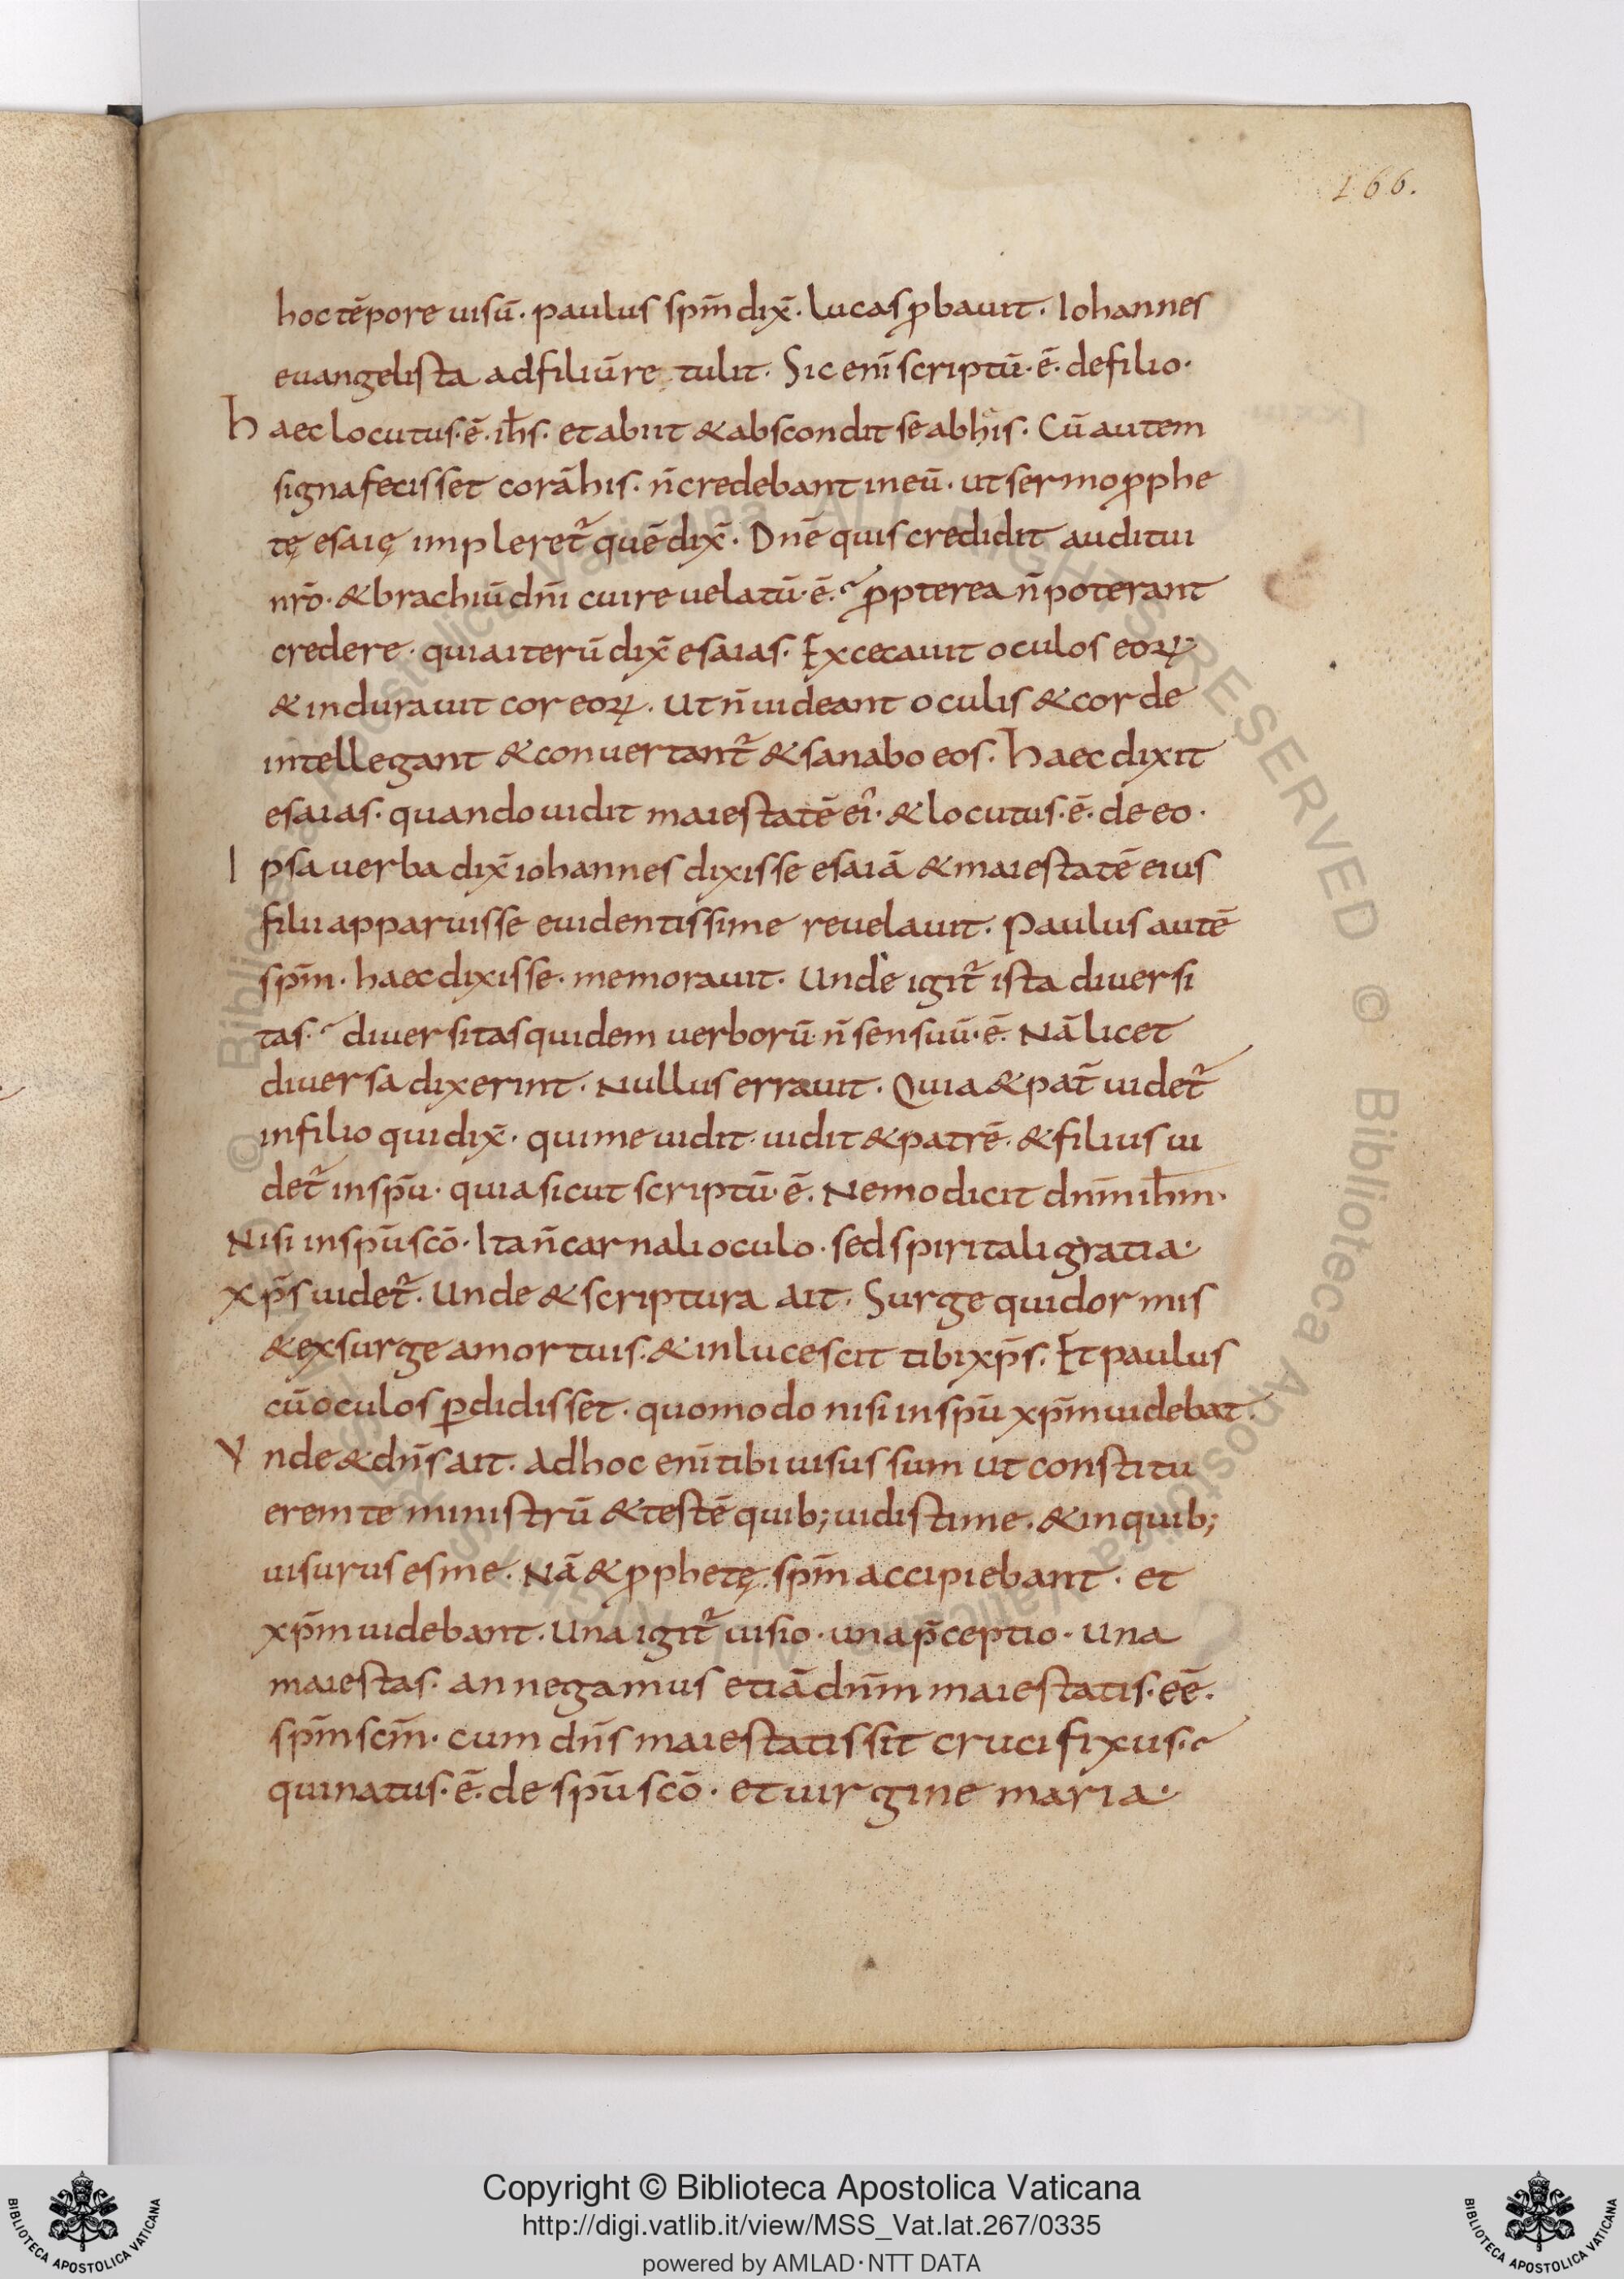 166.
hoc tēpore uisū· paulus spm̄ dix̄· lucas ꝓbauit· Iohannes
euangelista ad filiū re tulit· Sic enī scriptū·ē· de filio·
haec locutus·ē· ih̄s· et abiit & abscondit se ab his· Cū autem
signa fecisset corā his· n̄ credebant in eū· ut sermo ꝓphe
tę esaię impleret᷑ quē dix̄· Dnē quis credidit auditui
nrō· & brachiū dn̄i cui reuelatū·ē· ꝓpterea n̄ poterant
credere· quia iterū dix̄ esaias· Excecauit oculos eoꝝ
& indurauit cor eoꝝ· ut n̄ uideant oculis & corde
intellegant & conuertant᷑ & sanabo eos· haec dixit
esaias· quando uidit maiestatē ei᷒· & locutus·ē· de eo·
Ipsa uerba dix̄ iohannes dixisse esaiā & maiestatē eius
filii apparuisse euidentissime reuelauit· Paulus autē
spm̄· haec dixisse· memorauit· Unde igit᷑ ista diuersi
tas· diuersitas quidem uerborū n̄ sensuū·ē· Nā licet
diuersa dixerint· Nullus errauit· Quia & pat̄ uidet᷑
in filio qui dix̄· qui me uidit· uidit & patrē· & filius ui
det᷑ in spū· quia sicut scriptū·ē· Nemo dicit dnm̄ ih̄m·
Nisi in spū scō· Ita n̄ carnali oculo· sed spiritali gratia·
xp̄s uidet᷑· Unde & scriptura ait· Surge qui dormis
& exsurge a mortuis· & inlucescit tibi xp̄s· Et paulus
cū oculos ꝑdidisset· quomodo nisi in spū xpm̄ uidebat·
Vnde & dn̄s ait· Ad hoc enī tibi uisus sum ut constitu
erem te ministrū & testē quib; uidisti me· & in quib;
uisurus es me· Nā & ꝓphetę spm̄ accipiebant· et
xpm̄ uidebant· Una igit᷑ uisio· una p̄ceptio· una
maiestas· an negamus etiā dnm̄ maiestatis· eē·
spm̄ scm̄· cum dn̄s maiestatis sit crucifixus·
qui natus·ē· de spū scō· et uirgine maria·
Copyright © Biblioteca Apostolica Vaticana
http://digi.vatlib.it/view/MSS_Vat.lat.267/0335
powered by AMLAD·NTT DATA
BIBLIOTECA APOSTOLICA VATICANA
BIBLIOTECA APOSTOLICA VATICANA